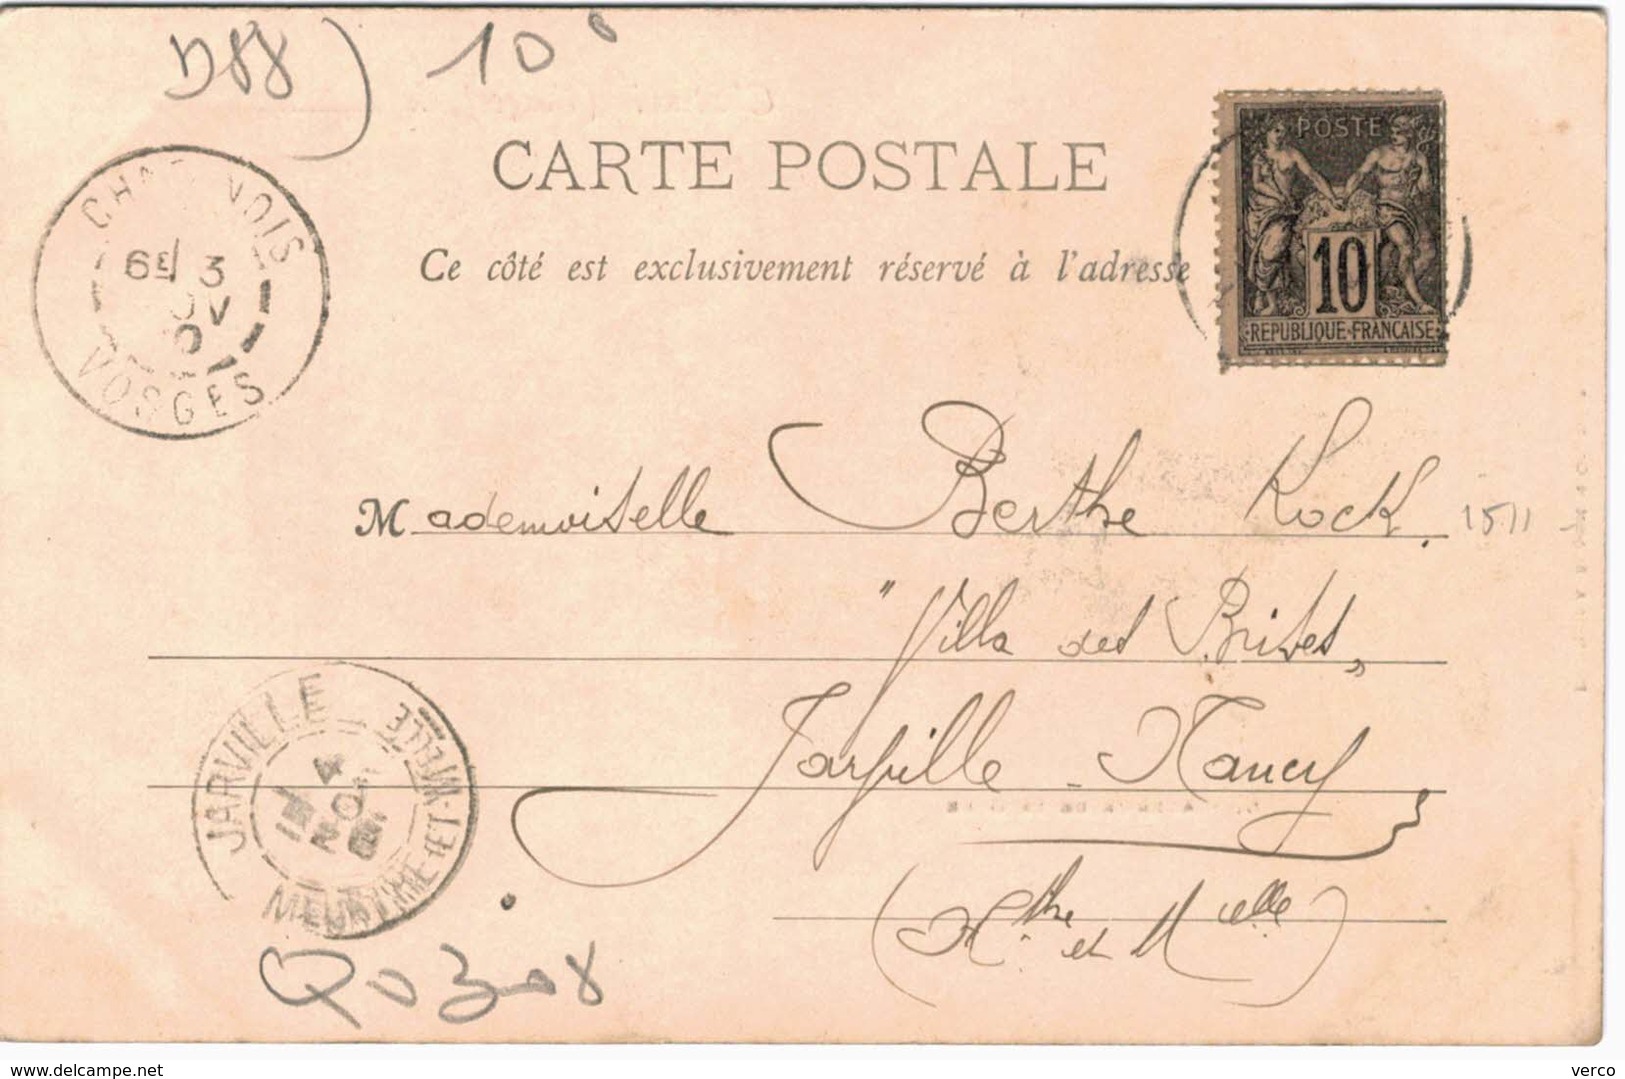 D88) 10
CARTE POSTALE
Ce côté est exclusivement réservé à l'adresse
POSTE
10
REPUBLIQUE FRANCAISE
CHA NOIS
6E 3
OV
0
VOSGES
Mademoiselle Berthe Kock. 1511
"Villa des Brises"
Jarville - Nancy
(Mthe et Mlle)
JARVILLE
MEURTHE-ET-MLLE
4
Q0308
verco